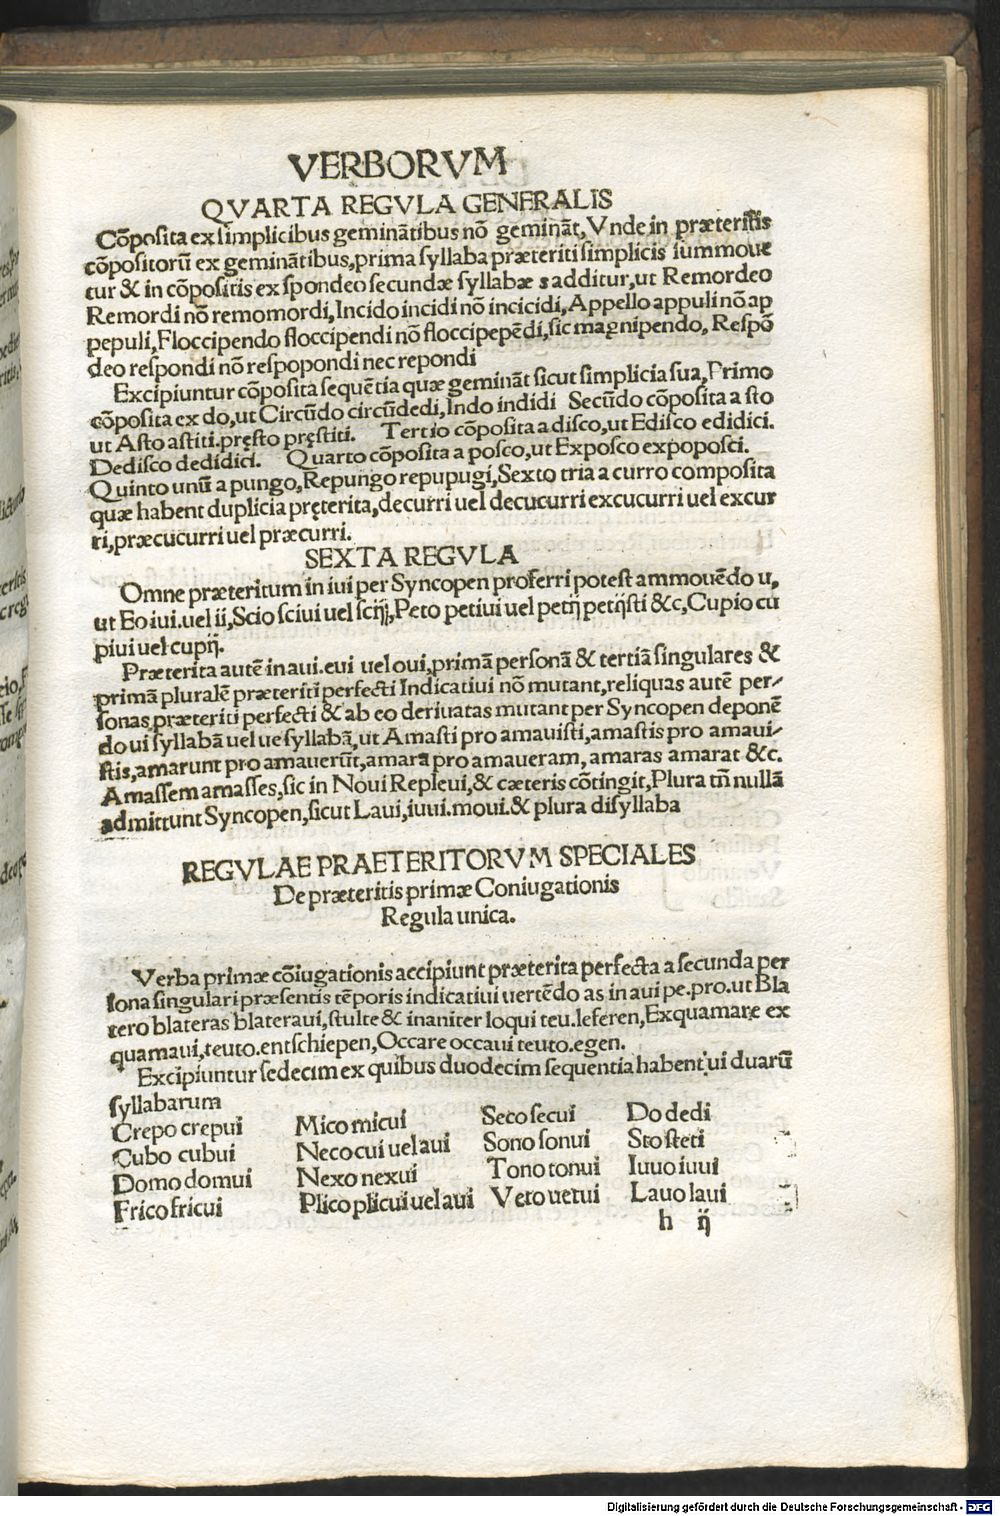 VERBORVM
QVARTA REGVLA GENERALIS
Cõposita ex simplicibus geminãtibus nõ geminãt, Vnde in præteritis
cõpositorũ ex geminãtibus, prima syllaba præteriti simplicis summoue
tur & in cõpositis ex spondeo secundæ syllabæ s additur, ut Remordeo
Remordi nõ remomordi, Incido incidi nõ incicidi, Appello appuli nõ ap
pepuli, Floccipendo floccipendi nõ floccipepẽdi, sic magnipendo, Respõ
deo respondi nõ respopondi nec repondi
Excipiuntur cõposita sequẽtia quæ geminãt sicut simplicia sua, Primo
cõposita ex do, ut Circũdo circũdedi, Indo indidi Secũdo cõposita a sto
ut Asto astiti. pręsto pręstiti. Tertio cõposita a disco, ut Edisco edidici.
Dedisco dedidici. Quarto cõposita a posco, ut Exposco expoposci.
Quinto unũ a pungo, Repungo repupugi, Sexto tria a curro composita
quæ habent duplicia pręterita, decurri uel decucurri excucurri uel excur
ri, præcucurri uel præcurri.
SEXTA REGVLA
Omne præteritum in iui per Syncopen proferri potest ammouẽdo u,
ut Eo iui. uel ii, Scio sciui uel scij, Peto petiui uel petij petijsti &c, Cupio cu
piui uel cupij.
Præterita autẽ in aui. eui uel oui, primã personã & tertiã singulares &
primã pluralẽ præteriti perfecti Indicatiui nõ mutant, reliquas autẽ per-
sonas præteriti perfecti & ab eo deriuatas mutant per Syncopen deponẽ
do ui syllabã uel ue syllabã, ut Amasti pro amauisti, amastis pro amaui-
stis, amarunt pro amauerũt, amara pro amaueram, amaras amarat &c.
Amassem amasses, sic in Noui Repleui, & cæteris cõtingit, Plura tñ nullã
admittunt Syncopen, sicut Laui, iuui. moui. & plura disyllaba
REGVLAE PRAETERITORVM SPECIALES
De præteritis primæ Coniugationis
Regula unica.
Verba primæ cõiugationis accipiunt præterita perfecta a secunda per
sona singulari præsentis tẽporis indicatiui uertẽdo as in aui pe. pro. ut Bla
tero blateras blateraui, stulte & inaniter loqui teu. leferen, Exquamare ex
quamaui, teuto. entschiepen, Occare occaui teuto. egen.
Excipiuntur sedecim ex quibus duodecim sequentia habent ui duarũ
syllabarum
Crepo crepui Mico micui Seco secui Do dedi
Cubo cubui Neco cui uel aui Sono sonui Sto steti
Domo domui Nexo nexui Tono tonui Iuuo iuui
Frico fricui Plico plicui uel aui Veto uetui Lauo laui
h ij
Digitalisierung gefördert durch die Deutsche Forschungsgemeinschaft - DFG